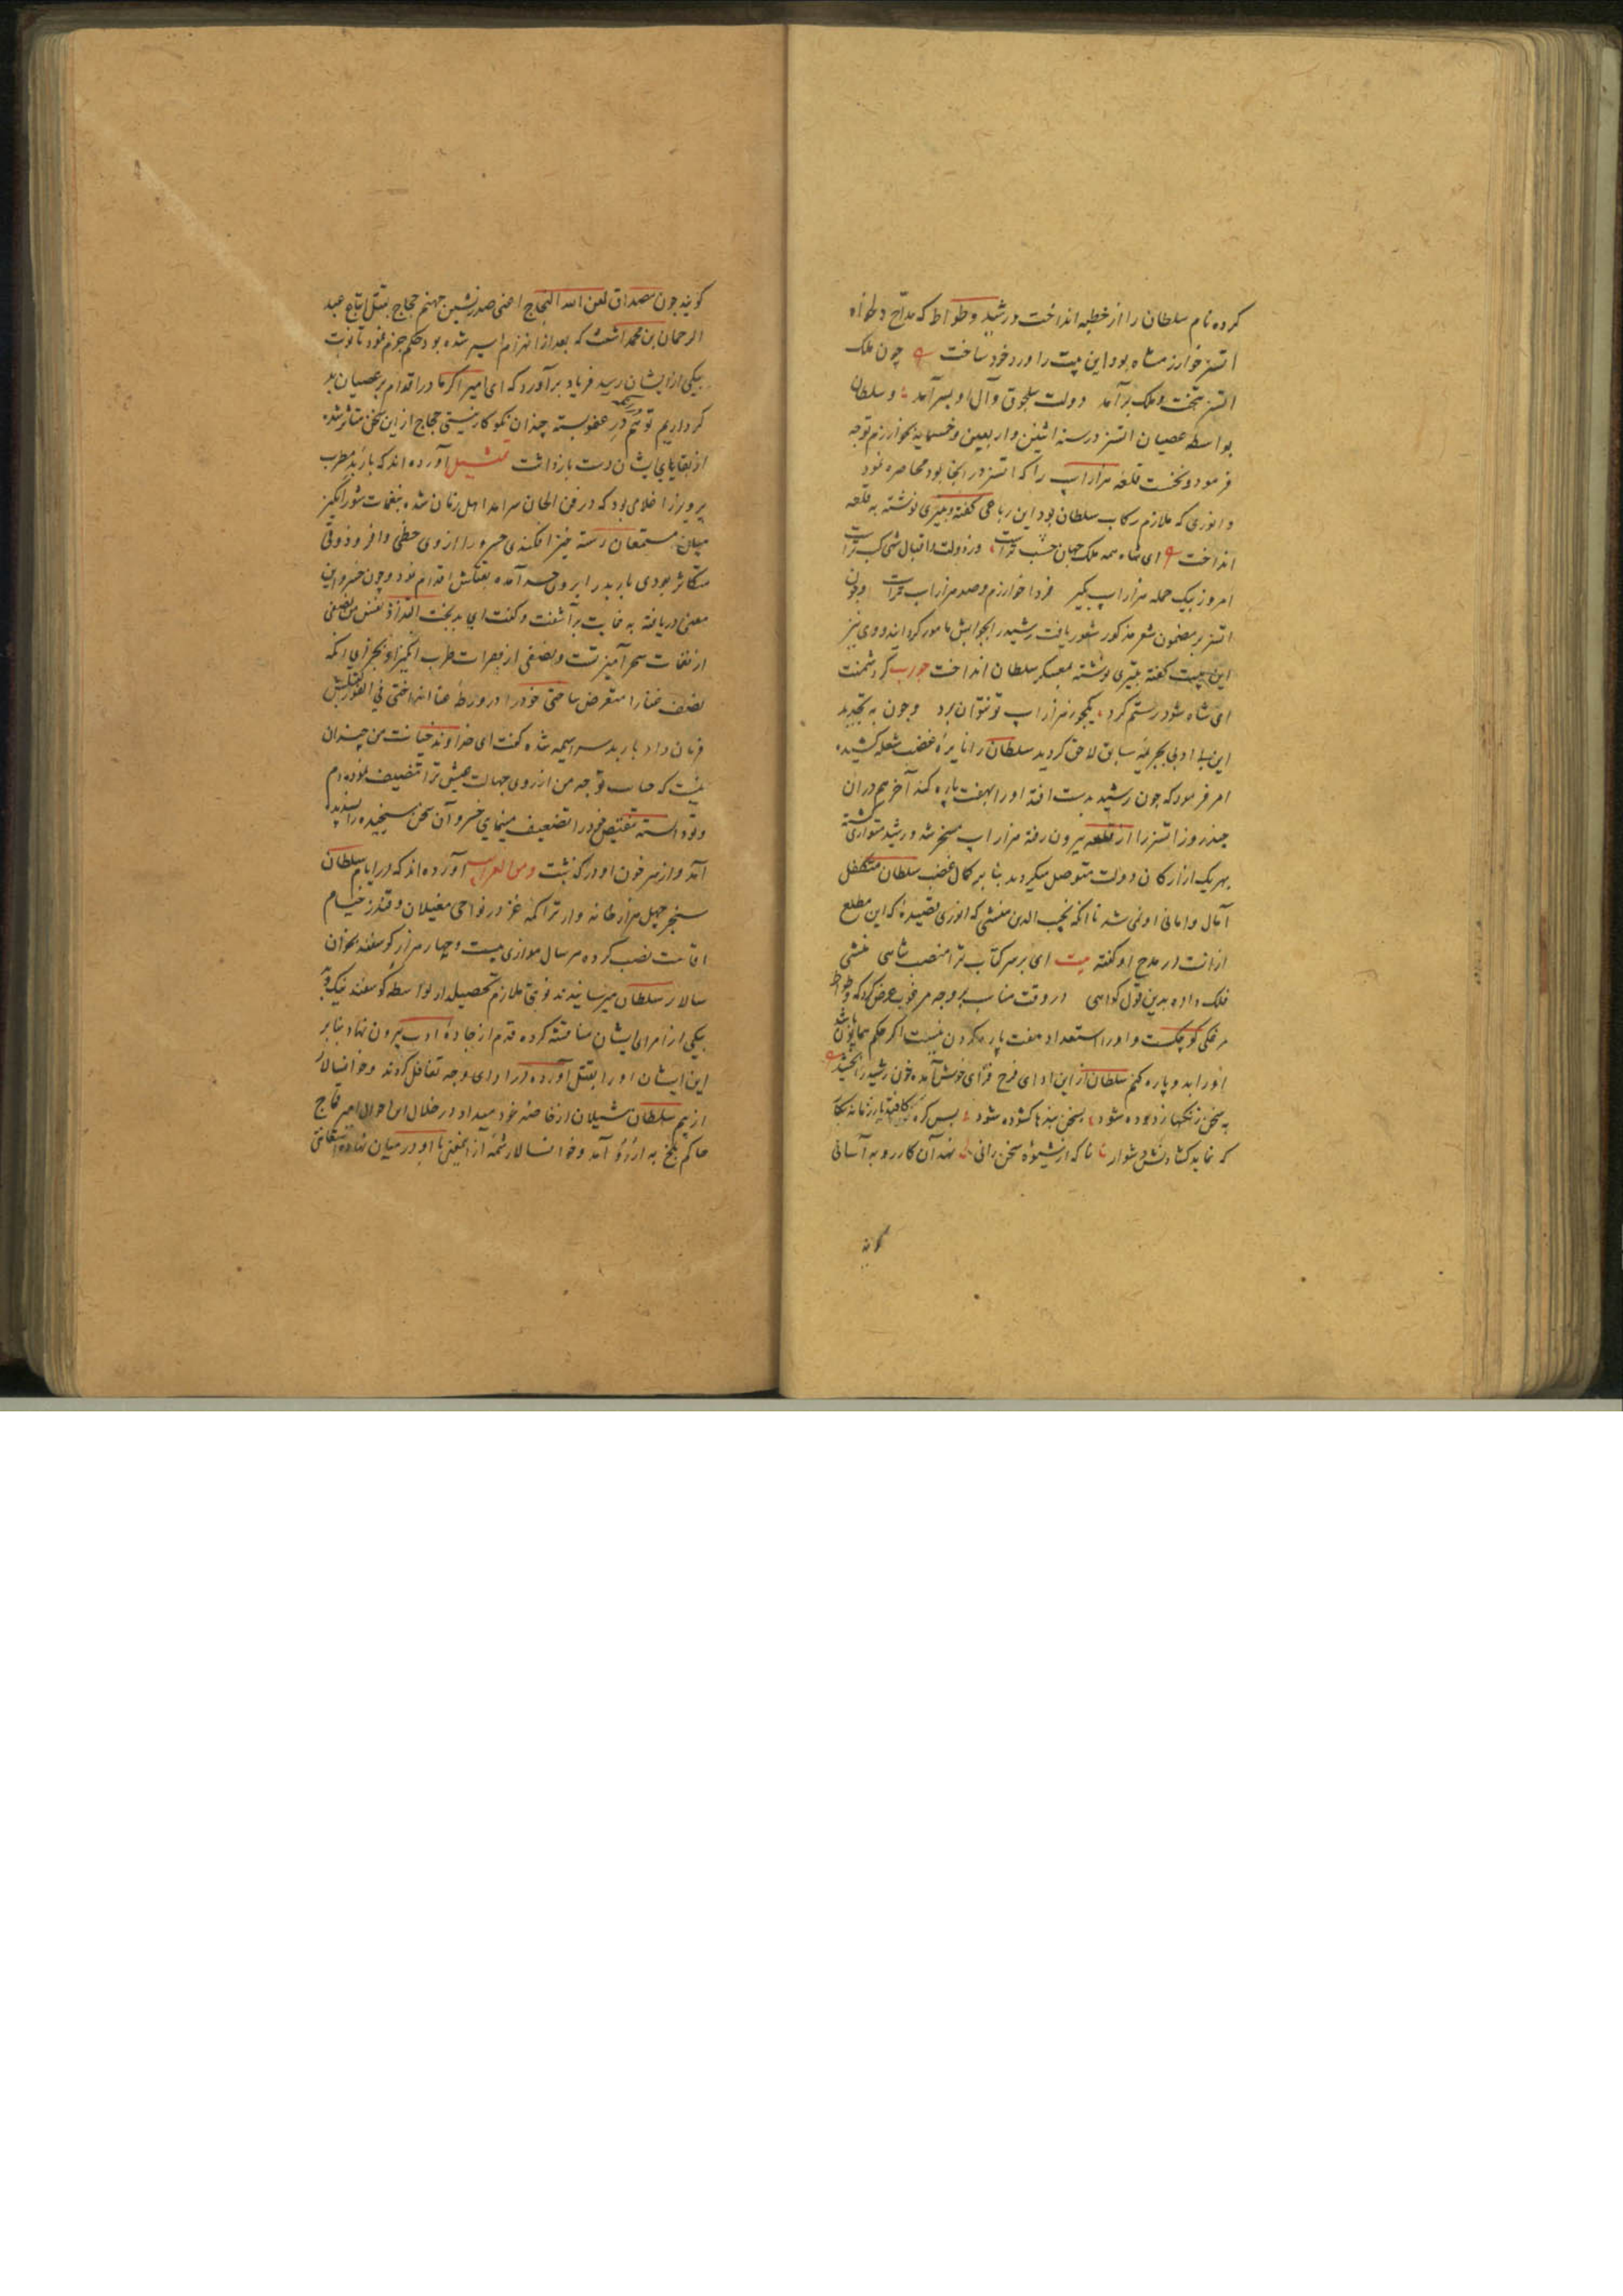 کرده نام سلطان را از خطبه انداخت و رشید وطواط که مداح و هواه
اتسز خوارزمشاه بود این بیت را ورد خود ساخت چون ملک
اتسز بتخت ملک برآمد دولت سلجوق و آل او بسر آمد و سلطان
بواسطه عصیان اتسز در سنه اثنین و اربعین و خمسمایه بخوارزم توجه
فرمود و نخست قلعه هزار اسپ را که اتسز در انجا بود محاصره نمود
و انوری که ملازم رکاب سلطان بود این رباعی گفته و بر تیری نوشته به قلعه
انداخت ای شاه همه ملک جهان حسب تراست وز دولت و اقبال شهی کسب تراست
امروز بیک حمله هزار اسپ بگیر فردا خوارزم و صد هزار اسپ تراست و چون
اتسز بر مضمون شعر مذکور شعور یافت رشید را بجوابش مامور گردانید و وی نیز
این بیت گفته بر تیری نوشته بمعسکر سلطان انداخت جواب گر دشمنت
ای شاه شود رستم گرد یک خر ز هزار اسپ تو نتوان برد و چون به تجدید
این بی ادبی بجریمه سابق لاحق گردید سلطان را نایره غضب شعله کشیده
امر فرمود که چون رشید بدست افتد او را بهفت پاره کنند آخر هم در آن
چند روز اتسز را از قلعه بیرون رفته هزار اسپ مسخر شد و رشید متواری گشته
بهر یک از ارکان دولت متوصل میگردید بنا بر کمال غضب سلطان متکفل
آمال و امانی او نمی شد تا آنکه نجیب الدین منشی که انوری قصیده که این مطلع
از آنست در مدح او گفته بیت ای بر سر کتاب ترا منصب شاهی منشی
فلک داده بدین قول گواهی در وقت مناسب بر وجه مرغوب عرض کرد که وطواط
مرغکی کوچکست و او را استعداد هفت پاره کردن نیست اگر حکم همایون باشد
او را بدو پاره کنم سلطان از این ادای فرح فزای خوش آمده خون رشید را بخشید
به سخن زنگها زدوده شود بسخن بندها گشوده شود بس گره کافتد از زمانه بکار
که نماید گشادنش دشوار ناگه از شیوه سخن رانی نهد آن کار رو به آسانی
گویند
گویند چون مصداق لعن الله الحجاج اعنی صدرنشین جهنم حجاج بقتل اتباع عبد
الرحمان بن محمد اشعث که بعد از انهزام اسیر شده بود حکم جزم نمود تا نوبت
بیکی از ایشان رسید فریاد برآورد که ای امیر اگر ما در اقدام بر عصیان بد
کرداریم تو هم در عفو بسته چندان نکو کار نیستی حجاج از این سخن متاثر شده
از بقایای ایشان دست بازداشت تمثیل آورده اند که باربد مطرب
پرویز را غلامی بود که در فن الحان سرآمد اهل زمان شده بنغمات شورانگیز
میان مستمعان رسته خیز افکندی خسرو را از وی حظی وافر و ذوقی
متکاثر بودی باربد را برو حسد آمده بقتلش اقدام نمود و چون خسرو این
معنی دریافته به غایت برآشفت و گفت ای بدبخت التذاذ نفس من نصفی
از نغمات سحرآمیز تست و نصفی از بصرات طرب انگیز او بجز ای آنکه
نصف غنا را متعرض ساختی خود را در ورطه عنا انداختی فی الفور بقتلش
فرمان داد باربد سراسیمه شده گفت ای خداوند خیانت من چندان
نیست که صاب توجه من از روی جهالت عیش ترا تنصیف نموده ام
و تو دانسته تنقیص فرح در تضعیف مینمای خسرو آن سخن سنجیده را پسندیده
آمد و از سر خون او درگذشت ومن الغرایب آورده اند که در ایام سلطان
سنجر چهل هزار خانه وار تراکمه غز در نواحی مغیلان و قندز خیام
اقامت نصب کرده هر سال موازی بیست و چهار هزار گوسفند بخوان
سالار سلطان میرسانیدند نوبتی ملازم تحصیلدار بواسطه گوسفند نیک و بد
بیکی از امرای ایشان مناقشه کرده قدم از جاده ادب بیرون نهاد بنا بر
این ایشان او را بقتل آورده در ادای وجه تغافل کردند و خوانسالار
از بیم سلطان شیلان از خاصه خود میداد در خلال این احوال امیر قماج
حاکم بلخ به اردو آمد و خوانسالار شمه از این معنی با او در میان نهاده استعانتی